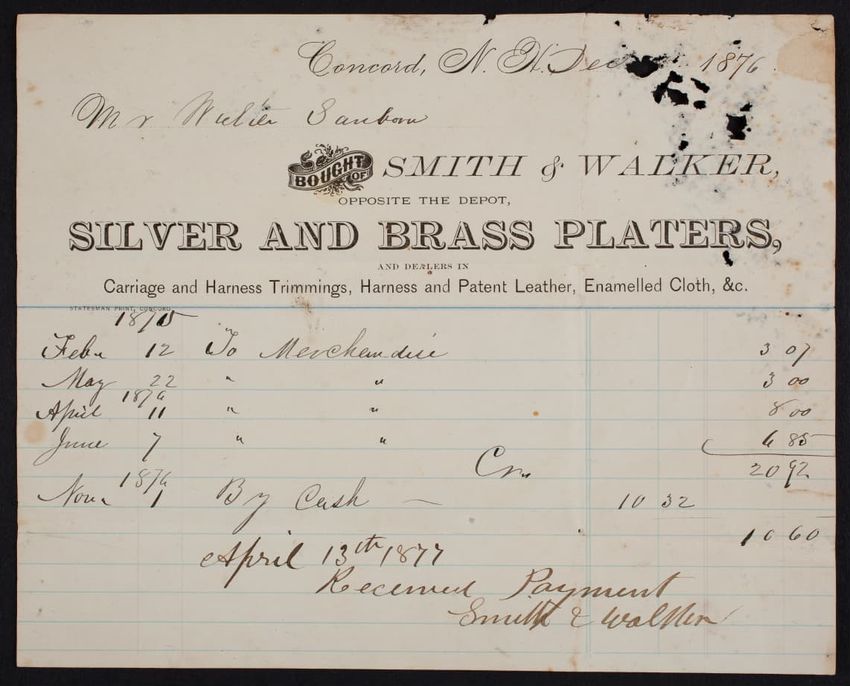 Concord, N. H. Dec 1876
Mr Walter Sanborn
BOUGHT OF SMITH & WALKER,
OPPOSITE THE DEPOT,
SILVER AND BRASS PLATERS,
AND DEALERS IN
Carriage and Harness Trimmings, Harness and Patent Leather, Enamelled Cloth, &c.
STATESMAN PRINT, CONCORD
1875
Feb. 12 To Merchandise 3 07
May 22 " " 3 00
1876
April 11 " " 8 00
June 7 " " 6 85
Cr. 20 92
1876
Nov. 1 By Cash — 10 32
10 60
April 13th 1877
Received Payment
Smith & Walker